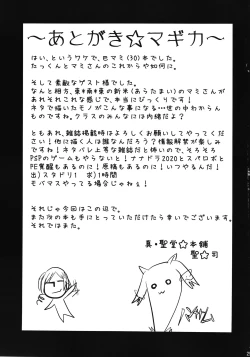 ～あとがき☆マギカ～
はい、というワケで、巴マミ(30)本でした。
たっくんとマミさんのこれからや如何に。
そして素敵なゲスト様でした。
なんと相方、東*南*東の新米(あらたまい)のマミさんが
あれそれこんな感じで、本当にびっくりです!
ネタで描いたモノがこんな事になる…世の中わからん
ものですね。クラスのみんなには内緒だよ?
ともあれ、雑誌掲載時はよろしくお願いしてやってくだ
さい!他に描く人は誰なんだろう?情報解禁が楽しみ
ですね!ネタバレ上等な雑誌だと怖いので、そろそろ
PSPのゲームもやらないと!ナナドラ2020とスパロボと
PE覚醒もあるのに!原稿もあるのに!いつやるんだ!
出)スタドリ1 求)1時間
モバマスやってる場合じゃねぇ!
それじゃ今回はこの辺で。
また次の本も手にとっていただけたら幸いでございます。
それではまた。
真・聖堂☆本舗
聖☆司